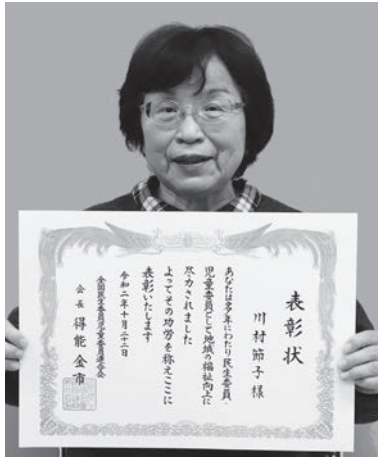 表彰状
川村節子様
あなたは多年にわたり民生委員・
児童委員として地域の福祉向上に
尽力されました
よってその功労を称えここに
表彰いたします
令和二年十月二十二日
全国民生委員児童委員連合会
会長 得能金市